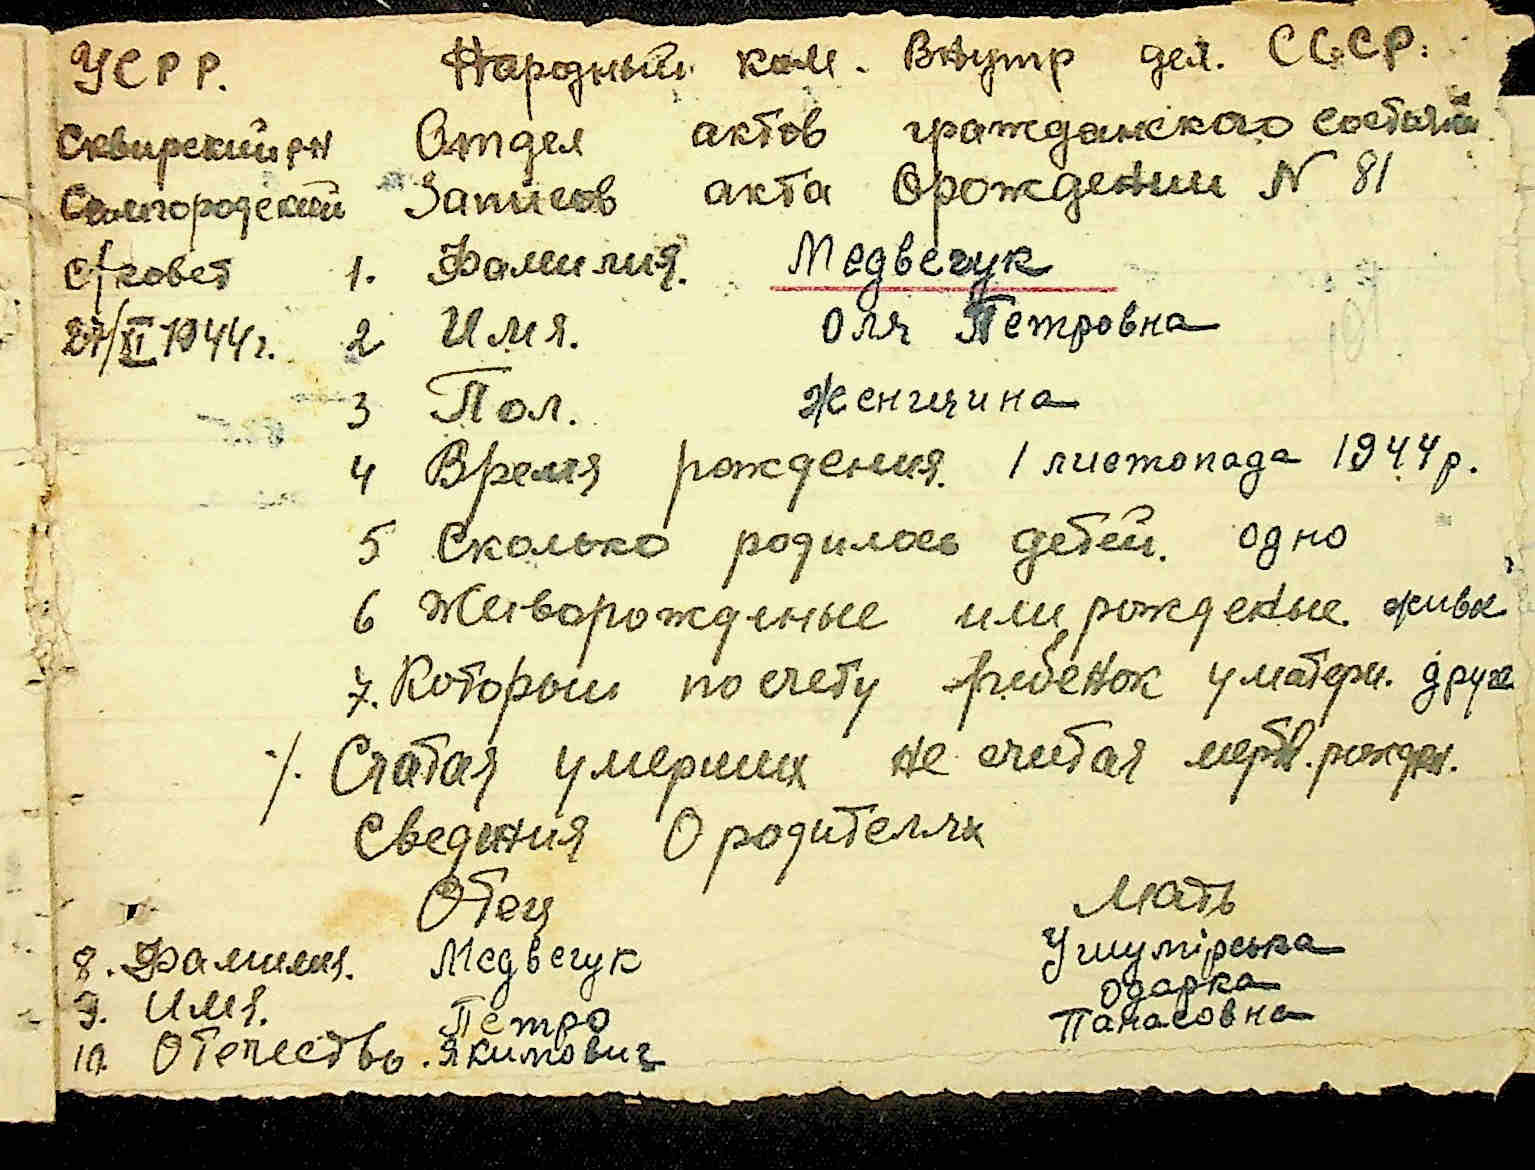 УСРР. Народный ком. Внутр дел. СССР.
Сквирский рн Отдел актов гражданского состояний
Самгородский Записов акта Орождении N 81
с/совет 1. Фамилия. Медвечук
27/XI 1944 г. 2 Имя. Оля Петровна
3 Пол. женщчина
4 Время рождения. 1 листопада 1944 р.
5 Сколько родилось детей. одно
6 Живорожденые или рожденые. живе
7. Который по счету ребенок у матери. друге
·/. Счатая умерших не считая мертв. рожден.
Сведения О родителях
Отец Мать
8. Фамилия. Медвечук Ушумірська
9. Имя. Петро Одарка
10. Отечество. Якимович Панасовна